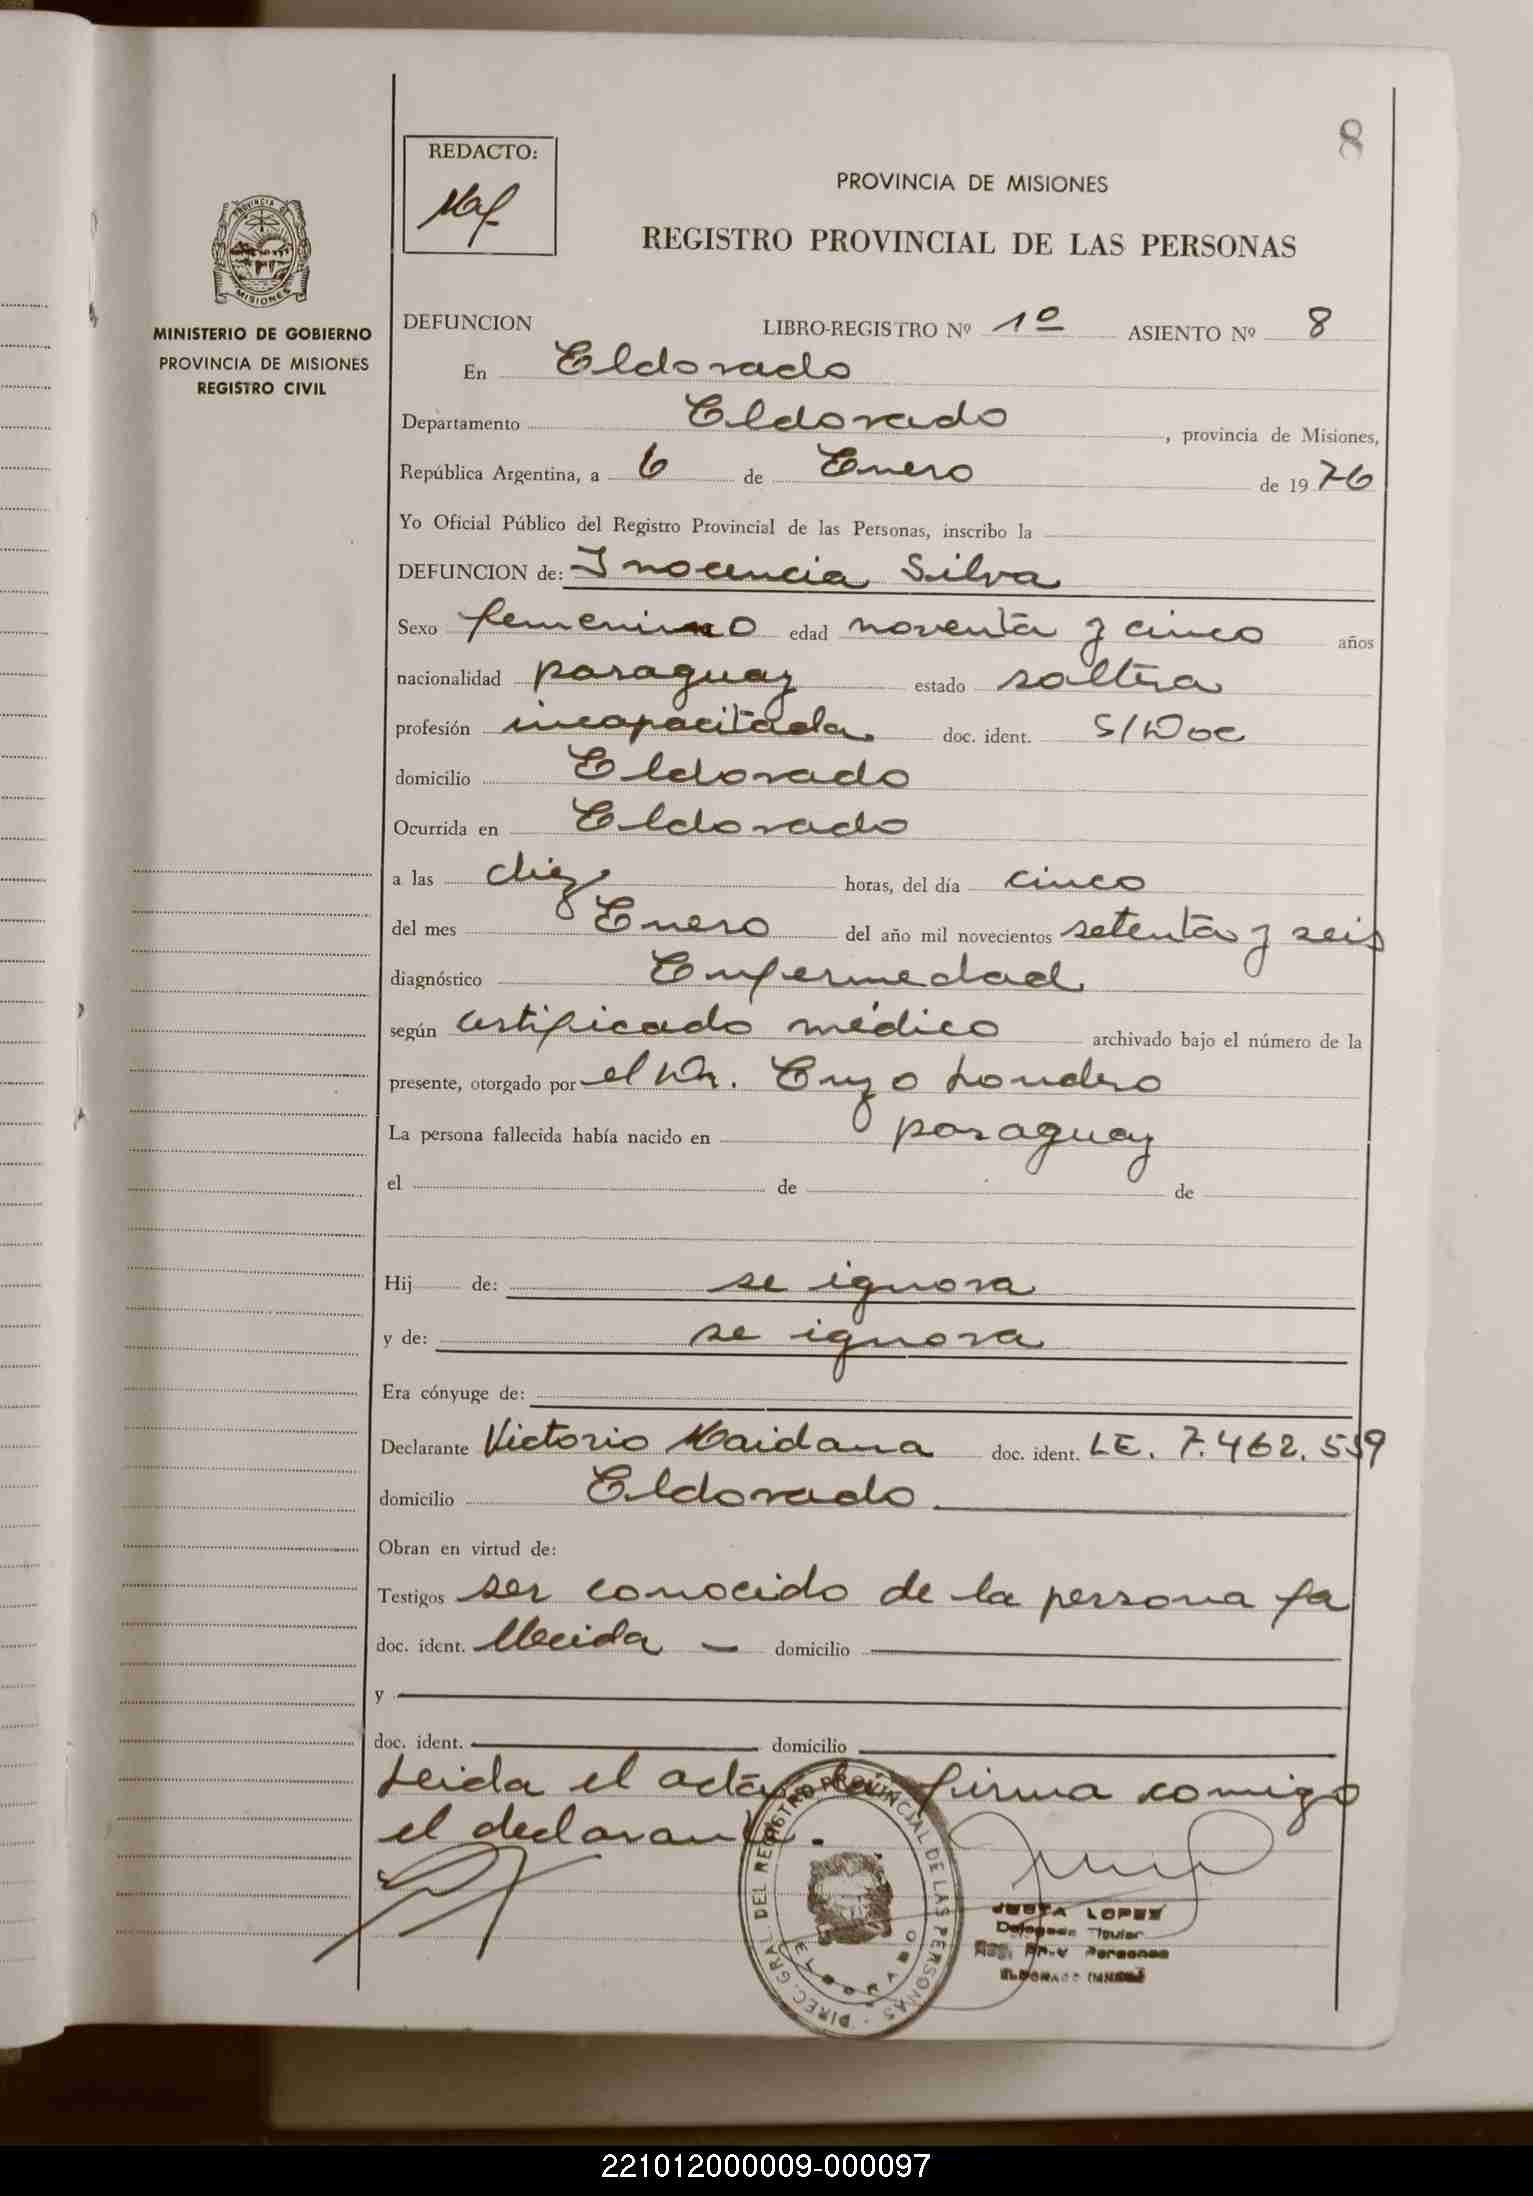 8
REDACTO:
PROVINCIA DE MISIONES
REGISTRO PROVINCIAL DE LAS PERSONAS
PROVINCIA DE
MISIONES
MINISTERIO DE GOBIERNO
PROVINCIA DE MISIONES
REGISTRO CIVIL
DEFUNCION LIBRO-REGISTRO Nº 1º ASIENTO Nº 8
En Eldorado
Departamento Eldorado, provincia de Misiones,
República Argentina, a 6 de Enero de 1976
Yo Oficial Público del Registro Provincial de las Personas, inscribo la
DEFUNCION de: Inocencia Silva
Sexo femenino edad noventa y cinco años
nacionalidad paraguay estado soltera
profesión incapacitada doc. ident. S/Doc
domicilio Eldorado
Ocurrida en Eldorado
a las diez horas, del día cinco
del mes Enero del año mil novecientos setenta y seis
diagnóstico Enfermedad
según certificado médico archivado bajo el número de la
presente, otorgado por el Dr. Enzo Londero
La persona fallecida había nacido en paraguay
el de de
Hij de: se ignora
y de: se ignora
Era cónyuge de:
Declarante Victorio Maidana doc. ident. LE. 7.462.559
domicilio Eldorado
Obran en virtud de:
Testigos ser conocido de la persona fa
doc. ident. llecida - domicilio
y
doc. ident. domicilio
Leida el acta la firma comigo
el declarante.
DIREC. GRAL. DEL REGISTRO PROVINCIAL DE LAS PERSONAS -
ELDORADO
JUSTA LOPEZ
Delegada Titular
Reg. Pr. Personas
ELDORADO
221012000009-000097